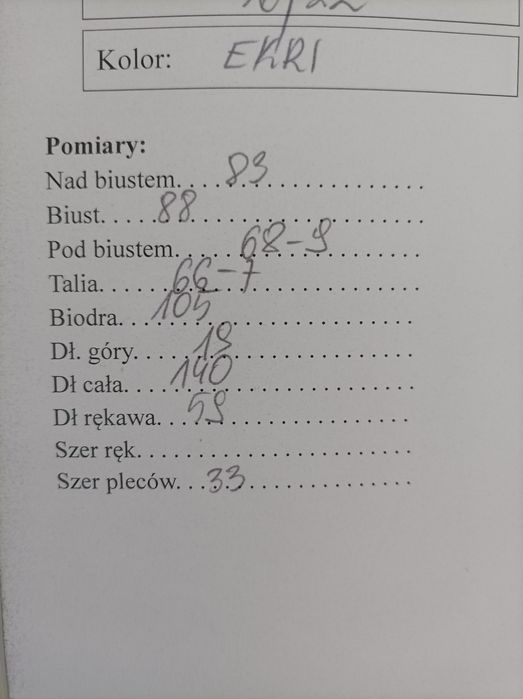 Kolor: EKRI
Pomiary:
Nad biustem....83..................
Biust.....88........................
Pod biustem......68-9............
Talia......66-7....................
Biodra...105.......................
Dł. góry.....19....................
Dł cała....140.....................
Dł rękawa...59....................
Szer ręk...........................
Szer pleców...33................